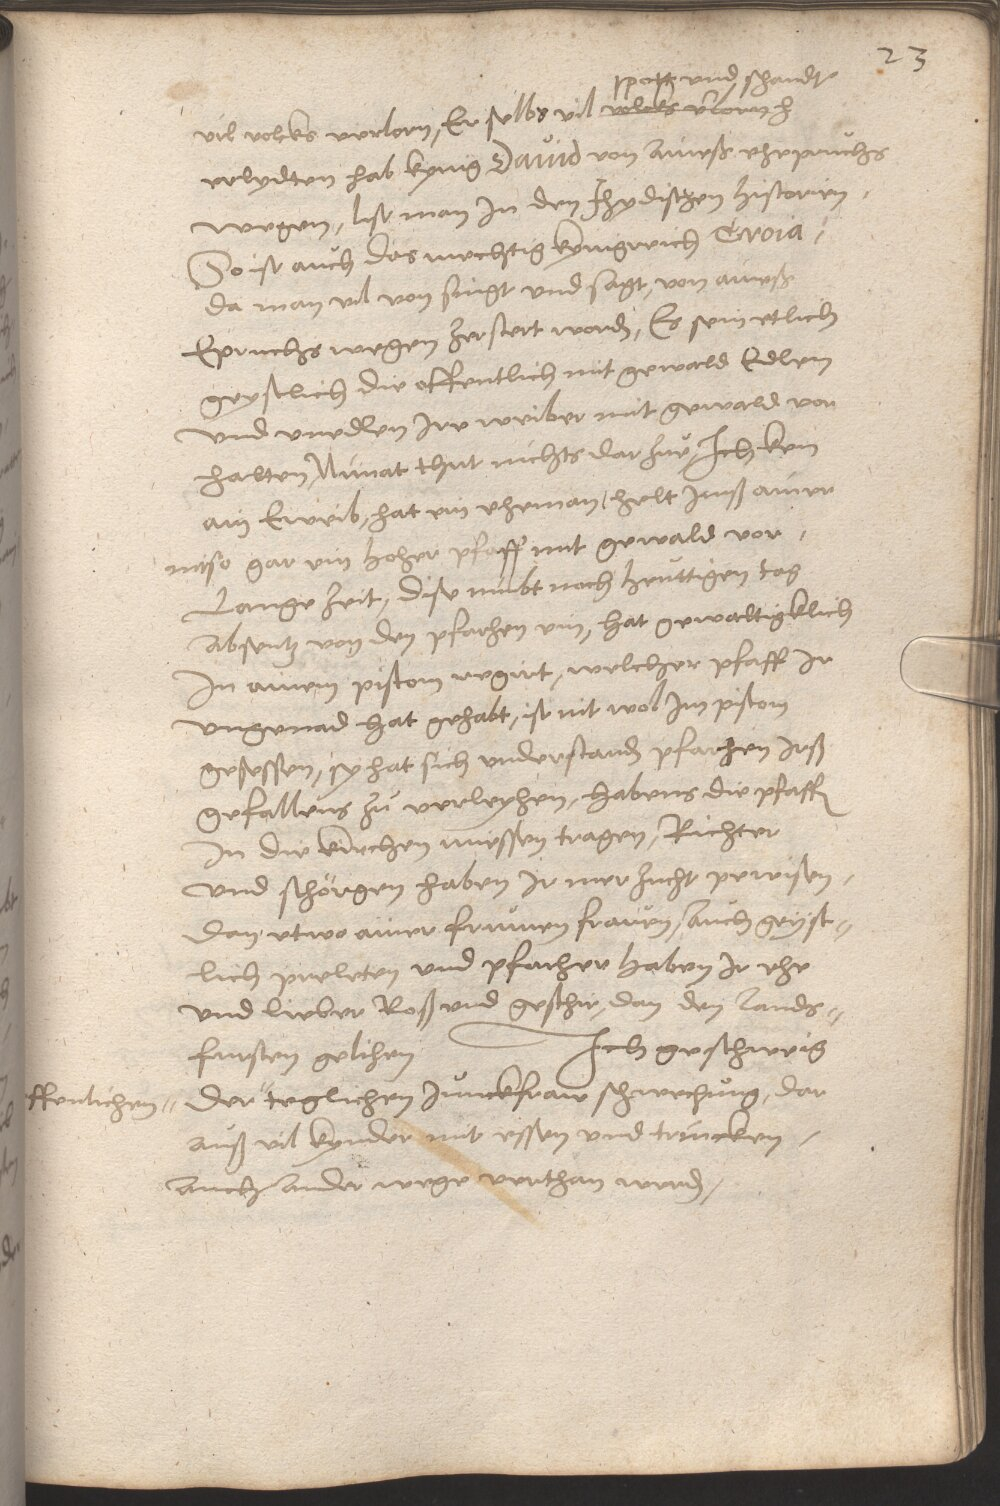 23
spott und schandt
vil volcks verlorn, Er selbs vil volcks vlorn h
erlydten hab kynig Dauid von aineß ehepruchs
wegen, list man In den Jhydischen historien,
So ist auch das mechtig kynigreich Troia,
da man vil von singt und sagt, von aineß
Epruchs wegen zerstert word, Es sein etlich
geystlich die offentlich mit gewald Edlen
und unedlen Ire weiber mit gewald vor
halten, Nimat thut nichts dar zue, Ich ken
ain Eweib, hat ein eheman, helt Imß ainer
gar ein hoher pfaff mit gewald vor,
Lange zeit, dise nimbt noch heuttigen tag
absentz von den pfarhen ein, hat gewaltigklich
In ainem pistom regirt, welcher pfaff Ir
ungenad hat gehabt, ist nit wol Im pistom
gesessen, sy hat sich understand pfarhen Irß
gefallens zu verleyhen, habens die pfaff
In die kirchen miessen tragen, Richter
und schörgen haben Ir mer zucht pewisen,
dan etwo ainer frumen frauen, auch geyst-
lich preleten und pfarher haben Ir ehe
und lieber Roß und geschir, dan den lands-
fursten gelihen Ich geschweig
ffenlichen der teglichen Junckfraw schwechung, dar
auß vil kynder mit essen und trincken,
auch ander wege verthan werd,